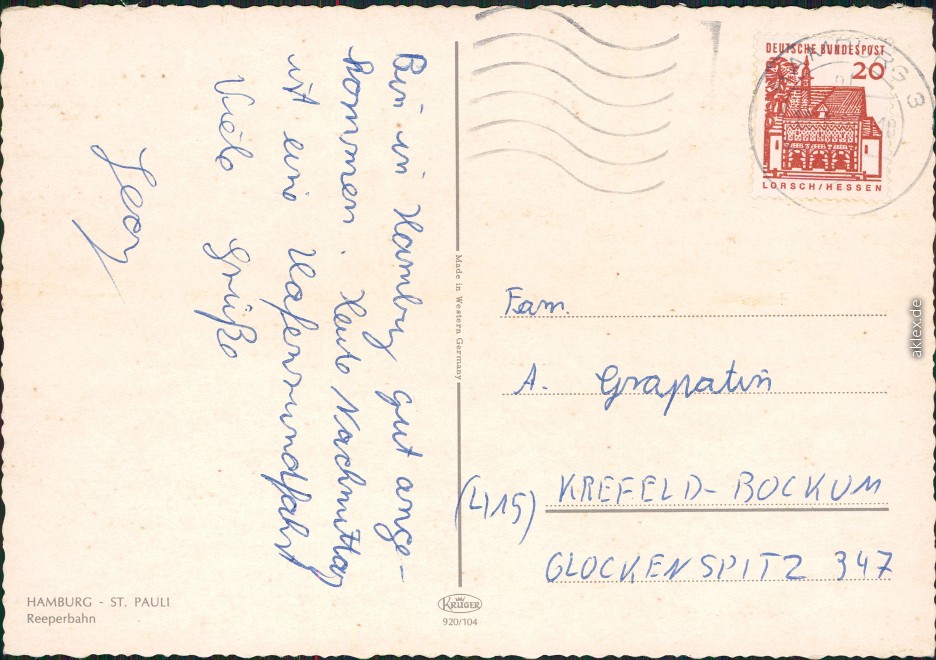 Bin in Hamburg gut ange-
kommen. Heute Nachmittag
ist eine Hafenrundfahrt
Viele Grüße
HAMBURG - ST. PAULI
Reeperbahn
Made in Western Germany
KRÜGER
920/104
DEUTSCHE BUNDESPOST
20
LORSCH/HESSEN
Fam.
A. Grapatin
(415) KREFELD-BOCKUM
GLOCKENSPITZ 347
aklex.de